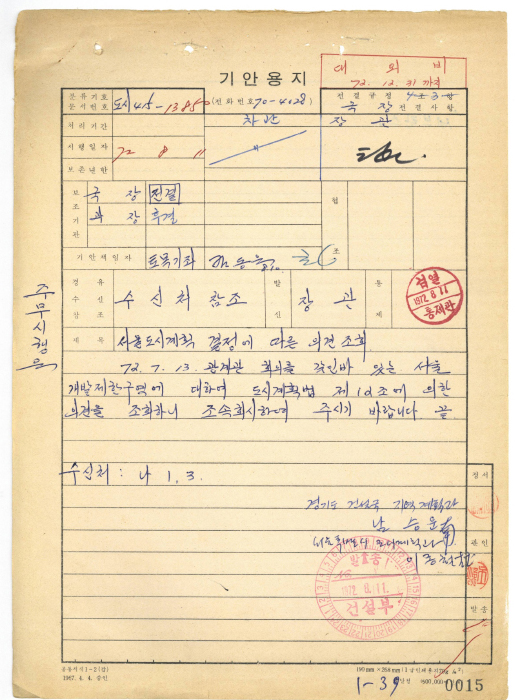 대 외 비
72. 12. 31 까지
기 안 용 지
분류기호
문서번호
도시415-13850
(전화번호 70-4028)
전결규정
국 장 전결사항
처리기간
차관
장 관
시행일자
72 8 11
보존년한
보조기관
국 장 전결
과 장 후결
협
조
기안책임자
토목기좌
경유
수신
참조
수신처 참조
발신
장 관
통제
검열
1972. 8. 11
통제관
제 목
서울도시계획 결정에 따른 의견 조회
72. 7. 13. 관계관 회의를 가진바 있는 서울
개발제한구역에 대하여 도시계획법 제12조에 의한
의견을 조회하니 조속회시하여 주시기 바랍니다 끝
수신처 : 나 1, 3.
정서
경기도 건설국 지역계획과
남 승 윤
관인
발송
1972. 8. 11.
건설부
발송
공통서식 1-2 (갑)
1967. 4. 4. 승인
1-39
0015